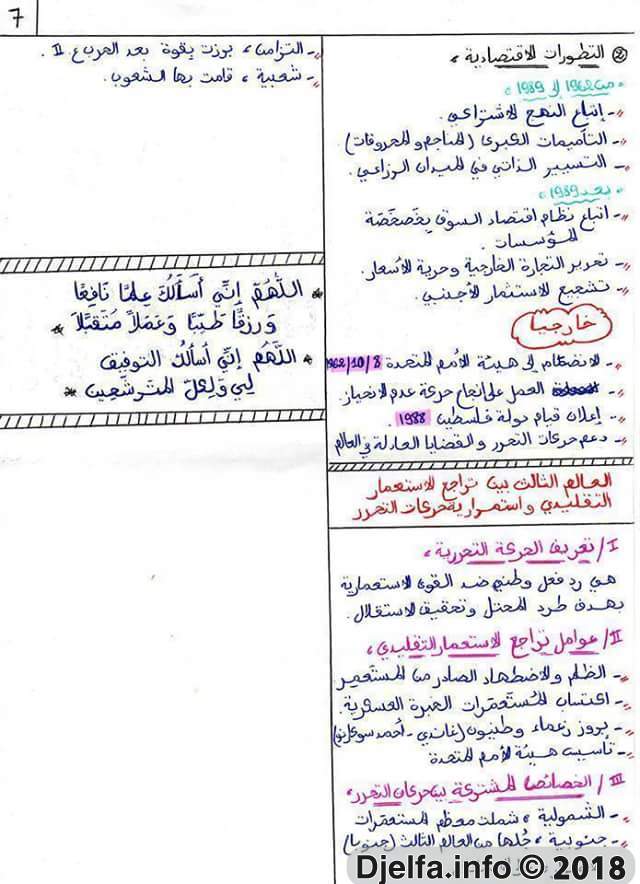 7
② التطورات الاقتصادية :
من 1962 إلى 1989
- إتباع النهج الاشتراكي.
- التأميمات الكبرى (المناجم والمحروقات)
- التسيير الذاتي في الميدان الزراعي.
بعد 1989
- اتباع نظام اقتصاد السوق بخصخصة
المؤسسات.
- تحرير التجارة الخارجية وحرية الأسعار.
- تشجيع الاستثمار الأجنبي.
خارجيا
- الانضمام إلى هيئة الأمم المتحدة 1962/10/8
العمل على إنجاح حركة عدم الانحياز.
- إعلان قيام دولة فلسطين 1988.
- دعم حركات التحرر والقضايا العادلة في العالم
العالم الثالث بين تراجع الاستعمار
التقليدي واستمرارية حركات التحرر
I/ تعريف الحركة التحررية :
هي رد فعل وطني ضد القوى الاستعمارية
بهدف طرد المحتل وتحقيق الاستقلال.
II/ عوامل تراجع الاستعمار التقليدي :
- الظلم والاضطهاد الصادر من المستعمر.
- اكتساب المُستَعمَرات الخبرة العسكرية.
- بروز زعماء وطنيون (غاندي - أحمد سوكارنو)
- تأسيس هيئة الأمم المتحدة
III/ الخصائص المشتركة بين حركات التحرر :
- الشمولية : شملت معظم المستعمرات
- جنوبية : جُلها من العالم الثالث (جنوبا)
- التزامن : برزت بقوة بعد الحرب ع II.
- شعبية : قامت بها الشعوب.
* اللَّهُمَّ إنِّي أَسْأَلُكَ عِلمًا نَافِعًا
وَرِزقًا طَيِّبًا وَعَمَلاً مُتَقَبَّلاً *
* اللَّهُمَّ إنِّي أسألُكَ التوفيق
لِي وَلِكلّ المترشّحين *
Djelfa.info © 2018